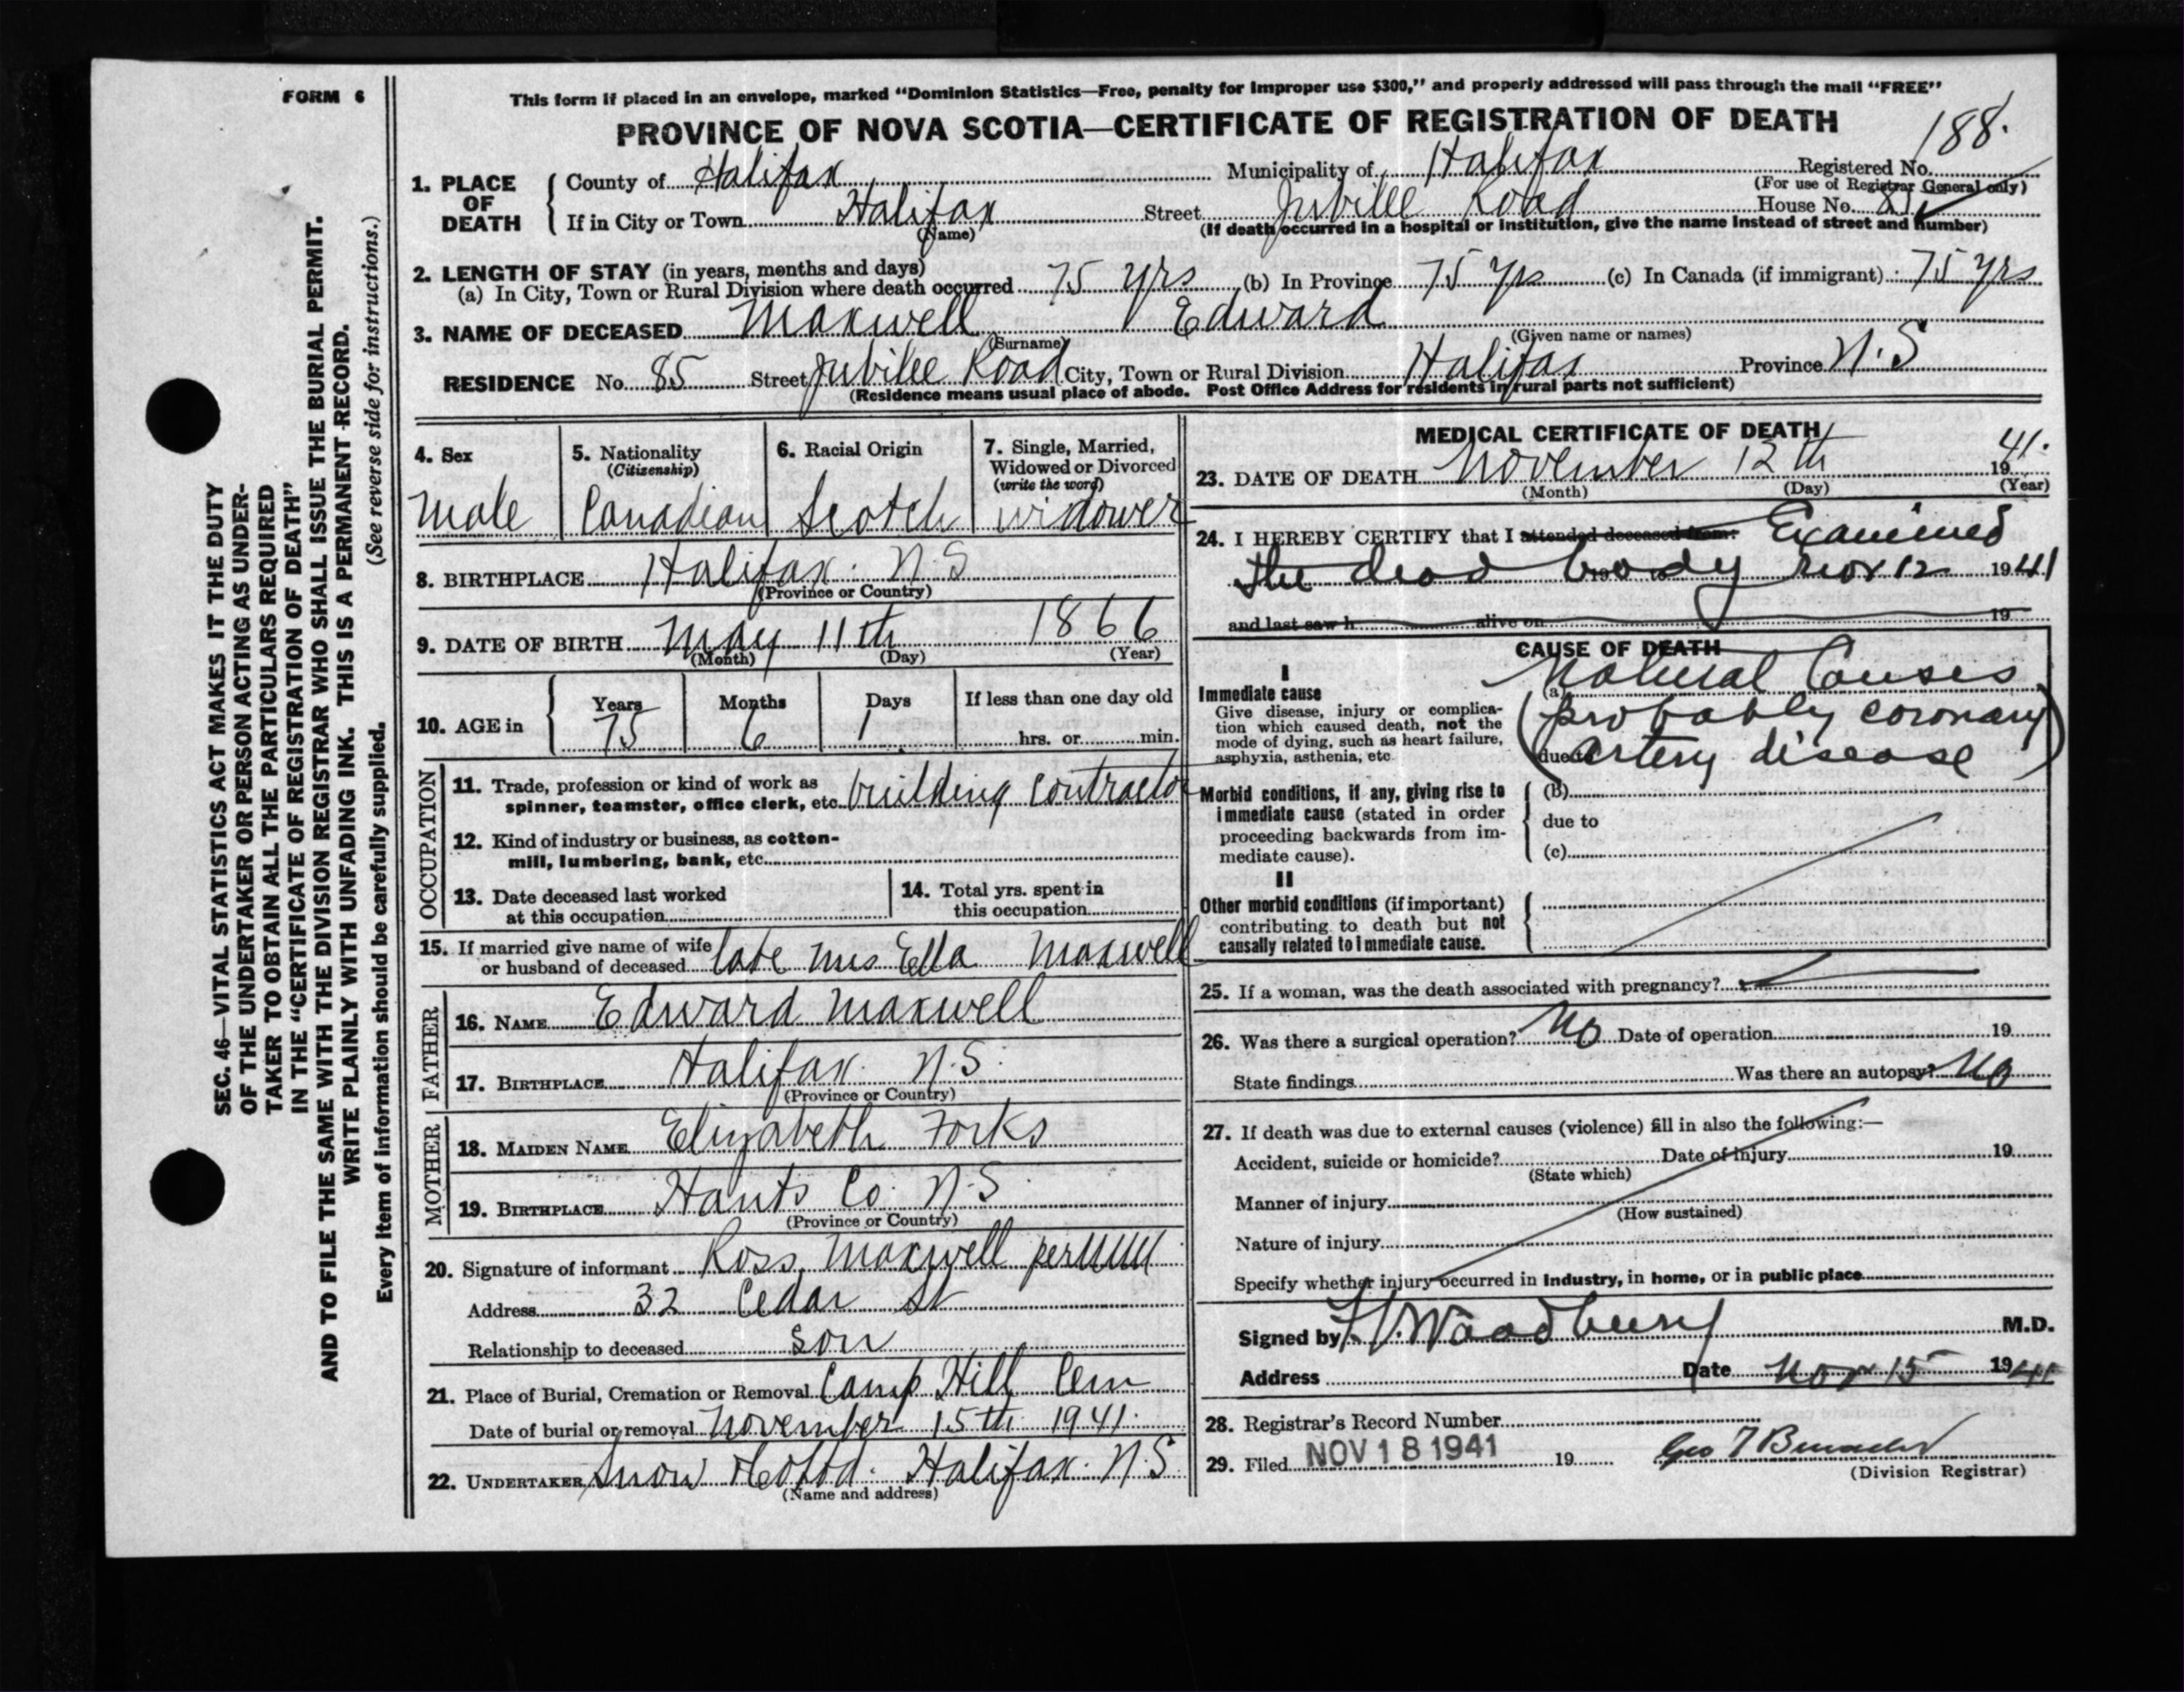 FORM 6
This form if placed in an envelope, marked “Dominion Statistics—Free, penalty for improper use $300,” and properly addressed will pass through the mail “FREE”
PROVINCE OF NOVA SCOTIA—CERTIFICATE OF REGISTRATION OF DEATH
188.
1. PLACE OF DEATH
County of Halifax Municipality of Halifax Registered No.
(For use of Registrar General only)
If in City or Town Halifax Street Jubilee Road House No. 85
(Name) (If death occurred in a hospital or institution, give the name instead of street and number)
2. LENGTH OF STAY (in years, months and days)
(a) In City, Town or Rural Division where death occurred 75 yrs (b) In Province 75 yrs (c) In Canada (if immigrant) 75 yrs
3. NAME OF DECEASED Maxwell Edward
(Surname) (Given name or names)
RESIDENCE No. 85 Street Jubilee Road City, Town or Rural Division Halifax Province N.S
(Residence means usual place of abode. Post Office Address for residents in rural parts not sufficient)
4. Sex
male
5. Nationality
(Citizenship)
Canadian
6. Racial Origin
Scotch
7. Single, Married,
Widowed or Divorced
(write the word)
widower
8. BIRTHPLACE Halifax. N.S
(Province or Country)
9. DATE OF BIRTH May 11th 1866
(Month) (Day) (Year)
10. AGE in
Years Months Days If less than one day old
75 6 1 hrs. or min.
OCCUPATION
11. Trade, profession or kind of work as
spinner, teamster, office clerk, etc. building contractor
12. Kind of industry or business, as cotton-
mill, lumbering, bank, etc.
13. Date deceased last worked
at this occupation
14. Total yrs. spent in
this occupation
15. If married give name of wife
or husband of deceased late Mrs Ella Maxwell
FATHER
16. NAME Edward Maxwell
17. BIRTHPLACE Halifax. N.S.
(Province or Country)
MOTHER
18. MAIDEN NAME Elizabeth Forks
19. BIRTHPLACE Hants Co. N.S.
(Province or Country)
20. Signature of informant Ross Maxwell per
Address 32 Cedar St
Relationship to deceased son
21. Place of Burial, Cremation or Removal Camp Hill Cem
Date of burial or removal November 15th 1941.
22. UNDERTAKER Snow & Co Ltd. Halifax. N.S.
(Name and address)
MEDICAL CERTIFICATE OF DEATH
23. DATE OF DEATH November 12th 1941.
(Month) (Day) (Year)
24. I HEREBY CERTIFY that I attended deceased from: Examined
the dead body Nov 12 1941
and last saw h alive on 19
CAUSE OF DEATH
I
Immediate cause
Give disease, injury or complica-
tion which caused death, not the
mode of dying, such as heart failure,
asphyxia, asthenia, etc
(a) Natural Causes
(probably coronary
due to artery disease)
Morbid conditions, if any, giving rise to
immediate cause (stated in order
proceeding backwards from im-
mediate cause).
(b)
due to
(c)
II
Other morbid conditions (if important)
contributing to death but not
causally related to immediate cause.
25. If a woman, was the death associated with pregnancy?
26. Was there a surgical operation? No Date of operation 19
State findings Was there an autopsy? No
27. If death was due to external causes (violence) fill in also the following:—
Accident, suicide or homicide? Date of injury 19
(State which)
Manner of injury
(How sustained)
Nature of injury
Specify whether injury occurred in industry, in home, or in public place
Signed by Woodbury M.D.
Address Date Nov 15 1941
28. Registrar's Record Number
29. Filed NOV 18 1941 19
(Division Registrar)
SEC. 46—VITAL STATISTICS ACT MAKES IT THE DUTY
OF THE UNDERTAKER OR PERSON ACTING AS UNDER-
TAKER TO OBTAIN ALL THE PARTICULARS REQUIRED
IN THE “CERTIFICATE OF REGISTRATION OF DEATH”
AND TO FILE THE SAME WITH THE DIVISION REGISTRAR WHO SHALL ISSUE THE BURIAL PERMIT.
WRITE PLAINLY WITH UNFADING INK. THIS IS A PERMANENT RECORD.
(See reverse side for instructions.)
Every item of information should be carefully supplied.